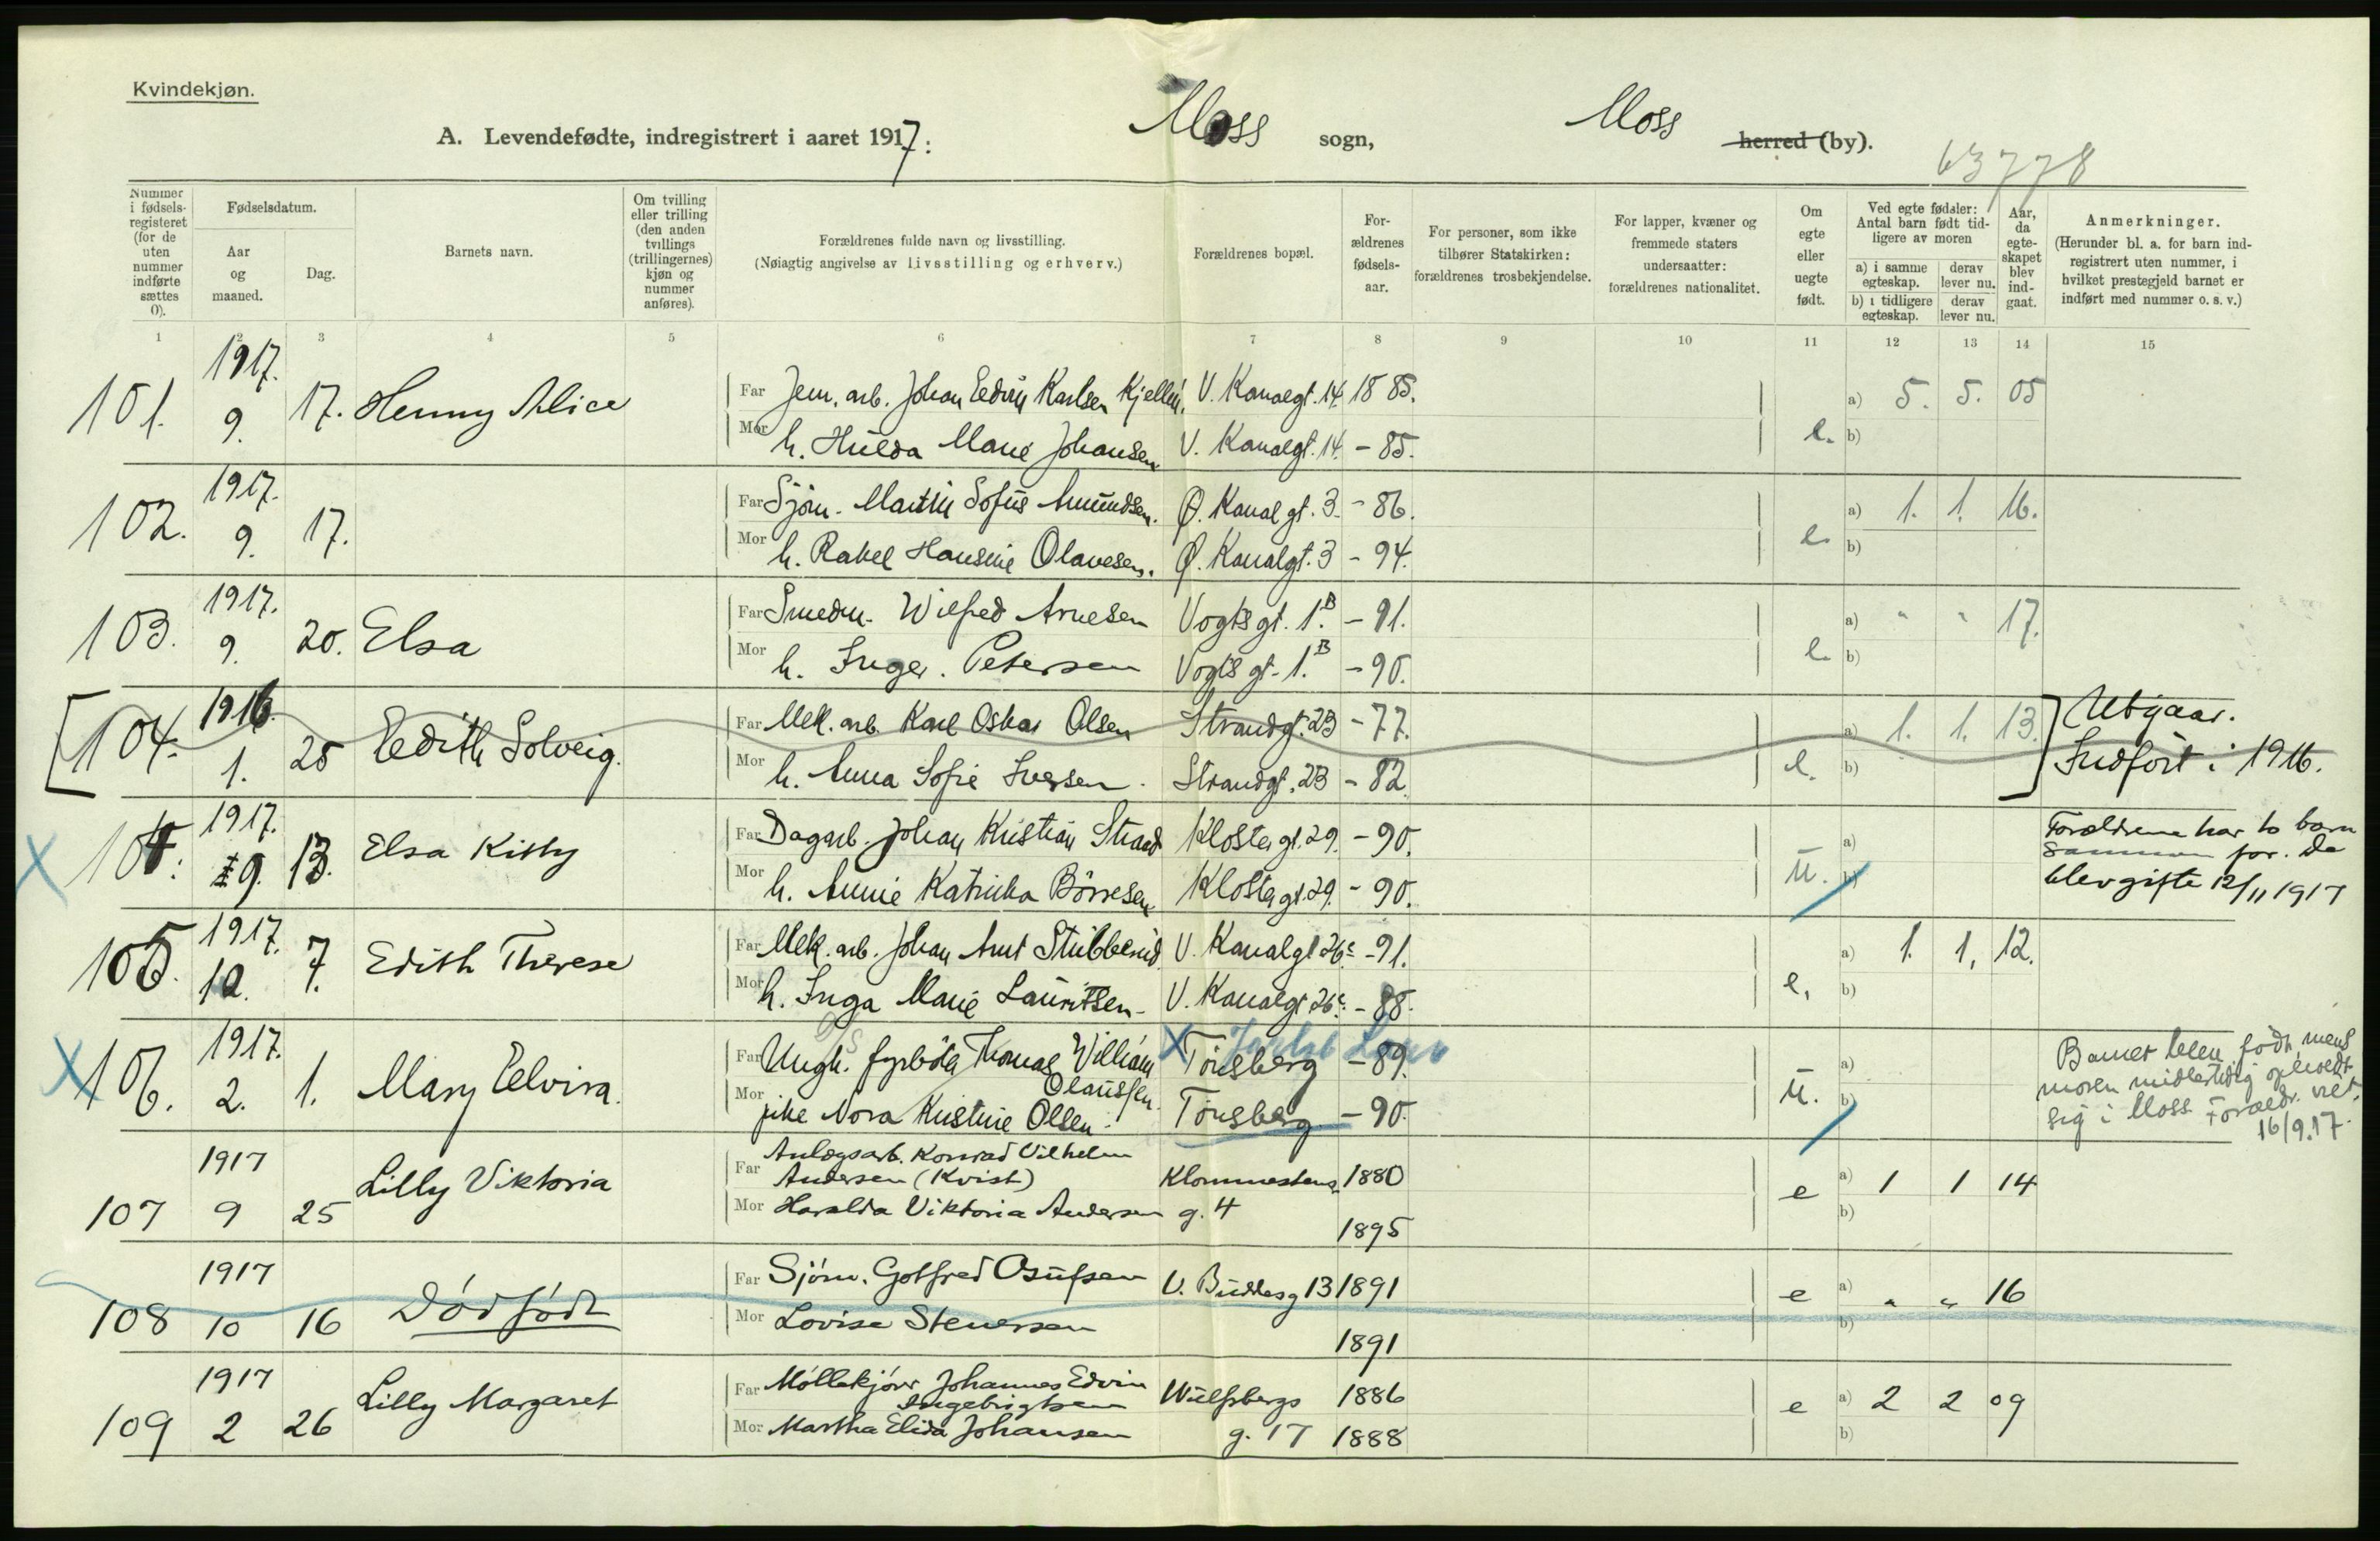 Kvindekjøn.
A. Levendefødte, indregistrert i aaret 1917: Moss sogn, Moss herred (by).
63778
Nummer i fødselsregisteret (for de uten nummer indførte sættes 0).
Fødselsdatum.
Aar og maaned.
Dag.
Barnets navn.
Om tvilling eller trilling (den anden tvillings (trillingernes) kjøn og nummer anføres).
Forældrenes fulde navn og livsstilling.
(Nøiagtig angivelse av livsstilling og erhverv.)
Forældrenes bopæl.
For-ældrenes fødsels-aar.
For personer, som ikke tilhører Statskirken: forældrenes trosbekjendelse.
For lapper, kvæner og fremmede staters undersaatter: forældrenes nationalitet.
Om egte eller uegte født.
Ved egte fødsler: Antal barn født tidligere av moren
a) i samme egteskap. derav lever nu.
b) i tidligere egteskap. derav lever nu.
Aar, da egte-skapet blev ind-gaat.
Anmerkninger.
(Herunder bl. a. for barn ind-registrert uten nummer, i hvilket prestegjeld barnet er indført med nummer o. s. v.)
1 2 3 4 5 6 7 8 9 10 11 12 13 14 15
1917.
101. 9. 17. Henny Alice Far Jern. arb. Johan Edvin Karlsen Kjellin, V. Kanalgt. 14. 1885. a) 5. 5. 05
Mor h. Hulda Marie Johansen V. Kanalgt. 14. - 85. e. b)
1917.
102. 9. 17. Far Sjøm. Martin Sofus Amundsen. Ø. Kanalgt. 3. - 86. a) 1. 1. 16.
Mor h. Rakel Hansine Olavesen. Ø. Kanalgt. 3 - 94. e. b)
1917.
103. 9. 20. Elsa Far Smedm. Wilfred Arnesen Vogtsgt. 1.B - 91. a) " " 17.
Mor h. Inger. Petersen Vogtsgt. 1.B - 90. e. b)
1916.
[104. 1. 25 Edith Solveig. Far Mek. arb. Karl Oskar Olsen Strandgt. 23 - 77. a) 1. 1. 13.] Utgaar.
Mor h. Anna Sofie Iversen. Strandgt. 23 - 82. e. b) Indført i 1916.
1917.
X 104. 9. 13. Elsa Kitty Far Dagarb. Johan Kristian Strand Klostergt. 29. - 90. a) Forældrene har to barn
sammen før. De
Mor h. Annie Katrinka Børresen Klostergt. 29. - 90. U. b) blev gifte 12/11 1917
1917.
105. 10. 7. Edith Therese Far Mek. arb. Johan Arnt Stubberud. V. Kanalgt 26c - 91. a) 1. 1, 12.
Mor h. Inga Marie Lauritsen - V. Kanalgt. 26c. - 88. e, b)
1917.
X 106. 2. 1. Mary Elvira. Far Ungk. fyrbøter Thomas William Olaussen. X Tønsberg - 89. a)
Mor pike Nora Kristine Olsen. Tønsberg - 90. U. b)
Barnet blev født, mens
moren midlertidig opholdt
sig i Moss. Forældr. viet,
16/9.17.
1917
107 9 25 Lilly Viktoria Far Anlægsarb. Konrad Vilhelm
Andersen (Kvist) 1880 e a) 1 1 14
Mor Haralda Viktoria Andersen g. 4 1895 b)
1917
108 10 16 Dødfødt Far Sjøm. Gotfred Osufsen V. Buddesg 13 1891 e a) " " 16
Mor Lovise Stenersen 1891 b)
1917
109 2 26 Lilly Margaret Far Møllekjører Johannes Edvin
Ingebrigtsen Wulfsbergs 1886 e a) 2 2 09
Mor Martha Elida Johansen g. 17 1888 b)